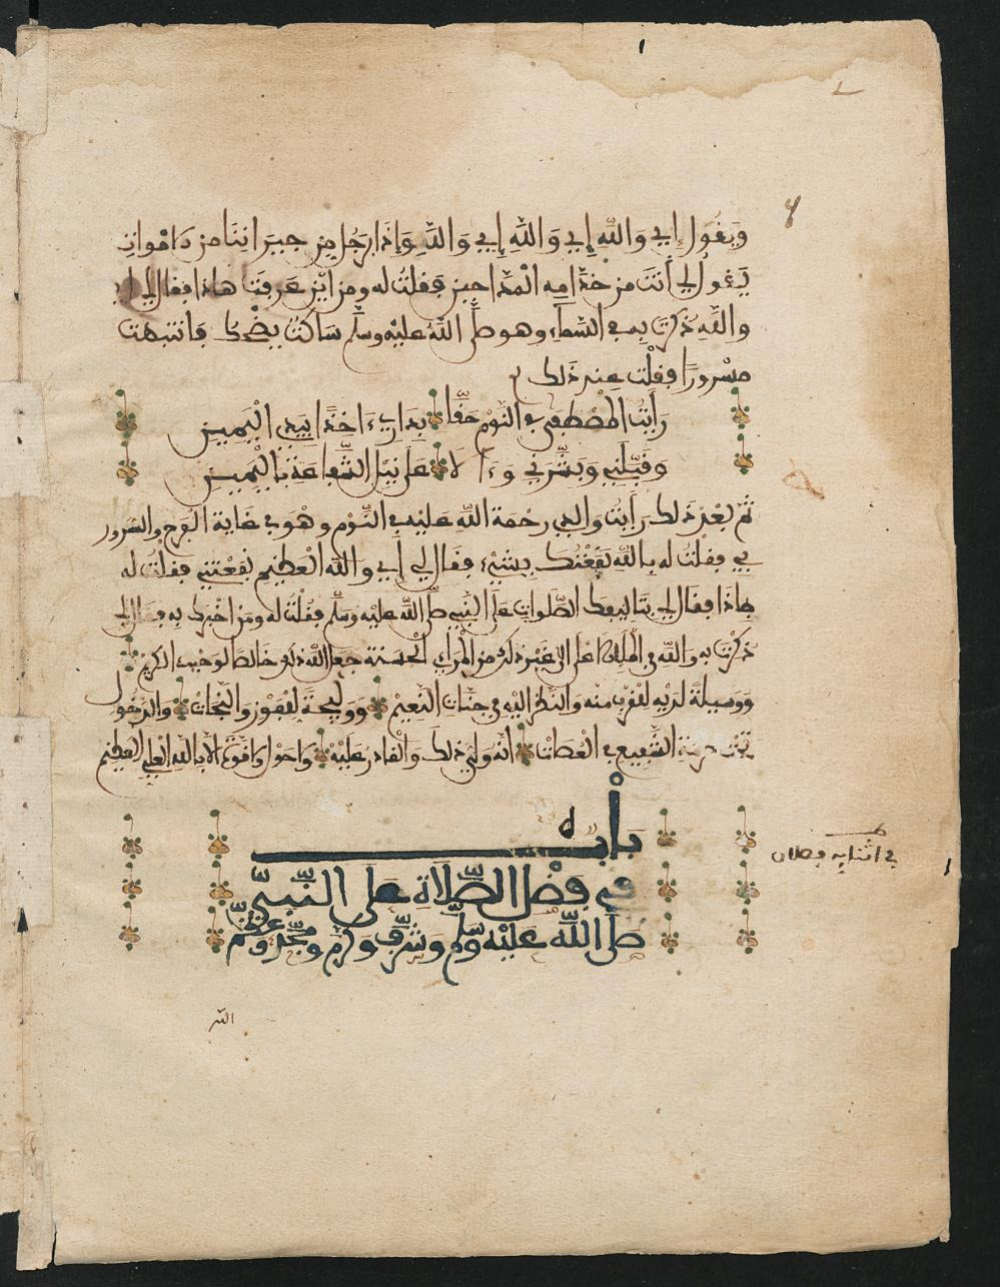 ويقول إي والله إي والله إي والله وإذا برجل من جيراننا من الأموات
يقول لي أنت من خدامه المداحين فقلت له ومن أين عرفت هاذا فقال لي إي
والله ذكرت به في السماء وهو صلى الله عليه وسلم ساكت يضحك فانتبهت
مسرورا فقلت عند ذلك
رأيت المصطفى في النوم حقا بداري ءاخذا بيدي اليمين
وقبلني وبشرني على نيل الشفاعة باليمين
ثم بعد ذلك رأيت والدي رحمة الله عليه في النوم وهو في غاية الفرح والسرور
بي فقلت له بالله نفعتك بشيء فقال لي إي والله العظيم نفعتني فقلت له
بماذا فقال لي بتاليفك الصلوات على النبي صلى الله عليه وسلم فقلت له ومن اخبرك به فقال لي
ذكرت به والله في الملإ الاعلى الى غير ذلك من المرائي الحسنة جعل الله ذلك خالصا لوجهه الكريم
ووسيلة لديه للقرب منه والنظر اليه في جنات النعيم ووليجة للفوز والنجات والدخول
تحت حرمة الشفيع في العصات انه ولي ذلك والقادر عليه ولا حول ولا قوة الا بالله العلي العظيم
باب
في فضل الصلاة على النبي
صلى الله عليه وسلم وشرف وكرم ومجد وعظم
في اثنايه فصلان
الله